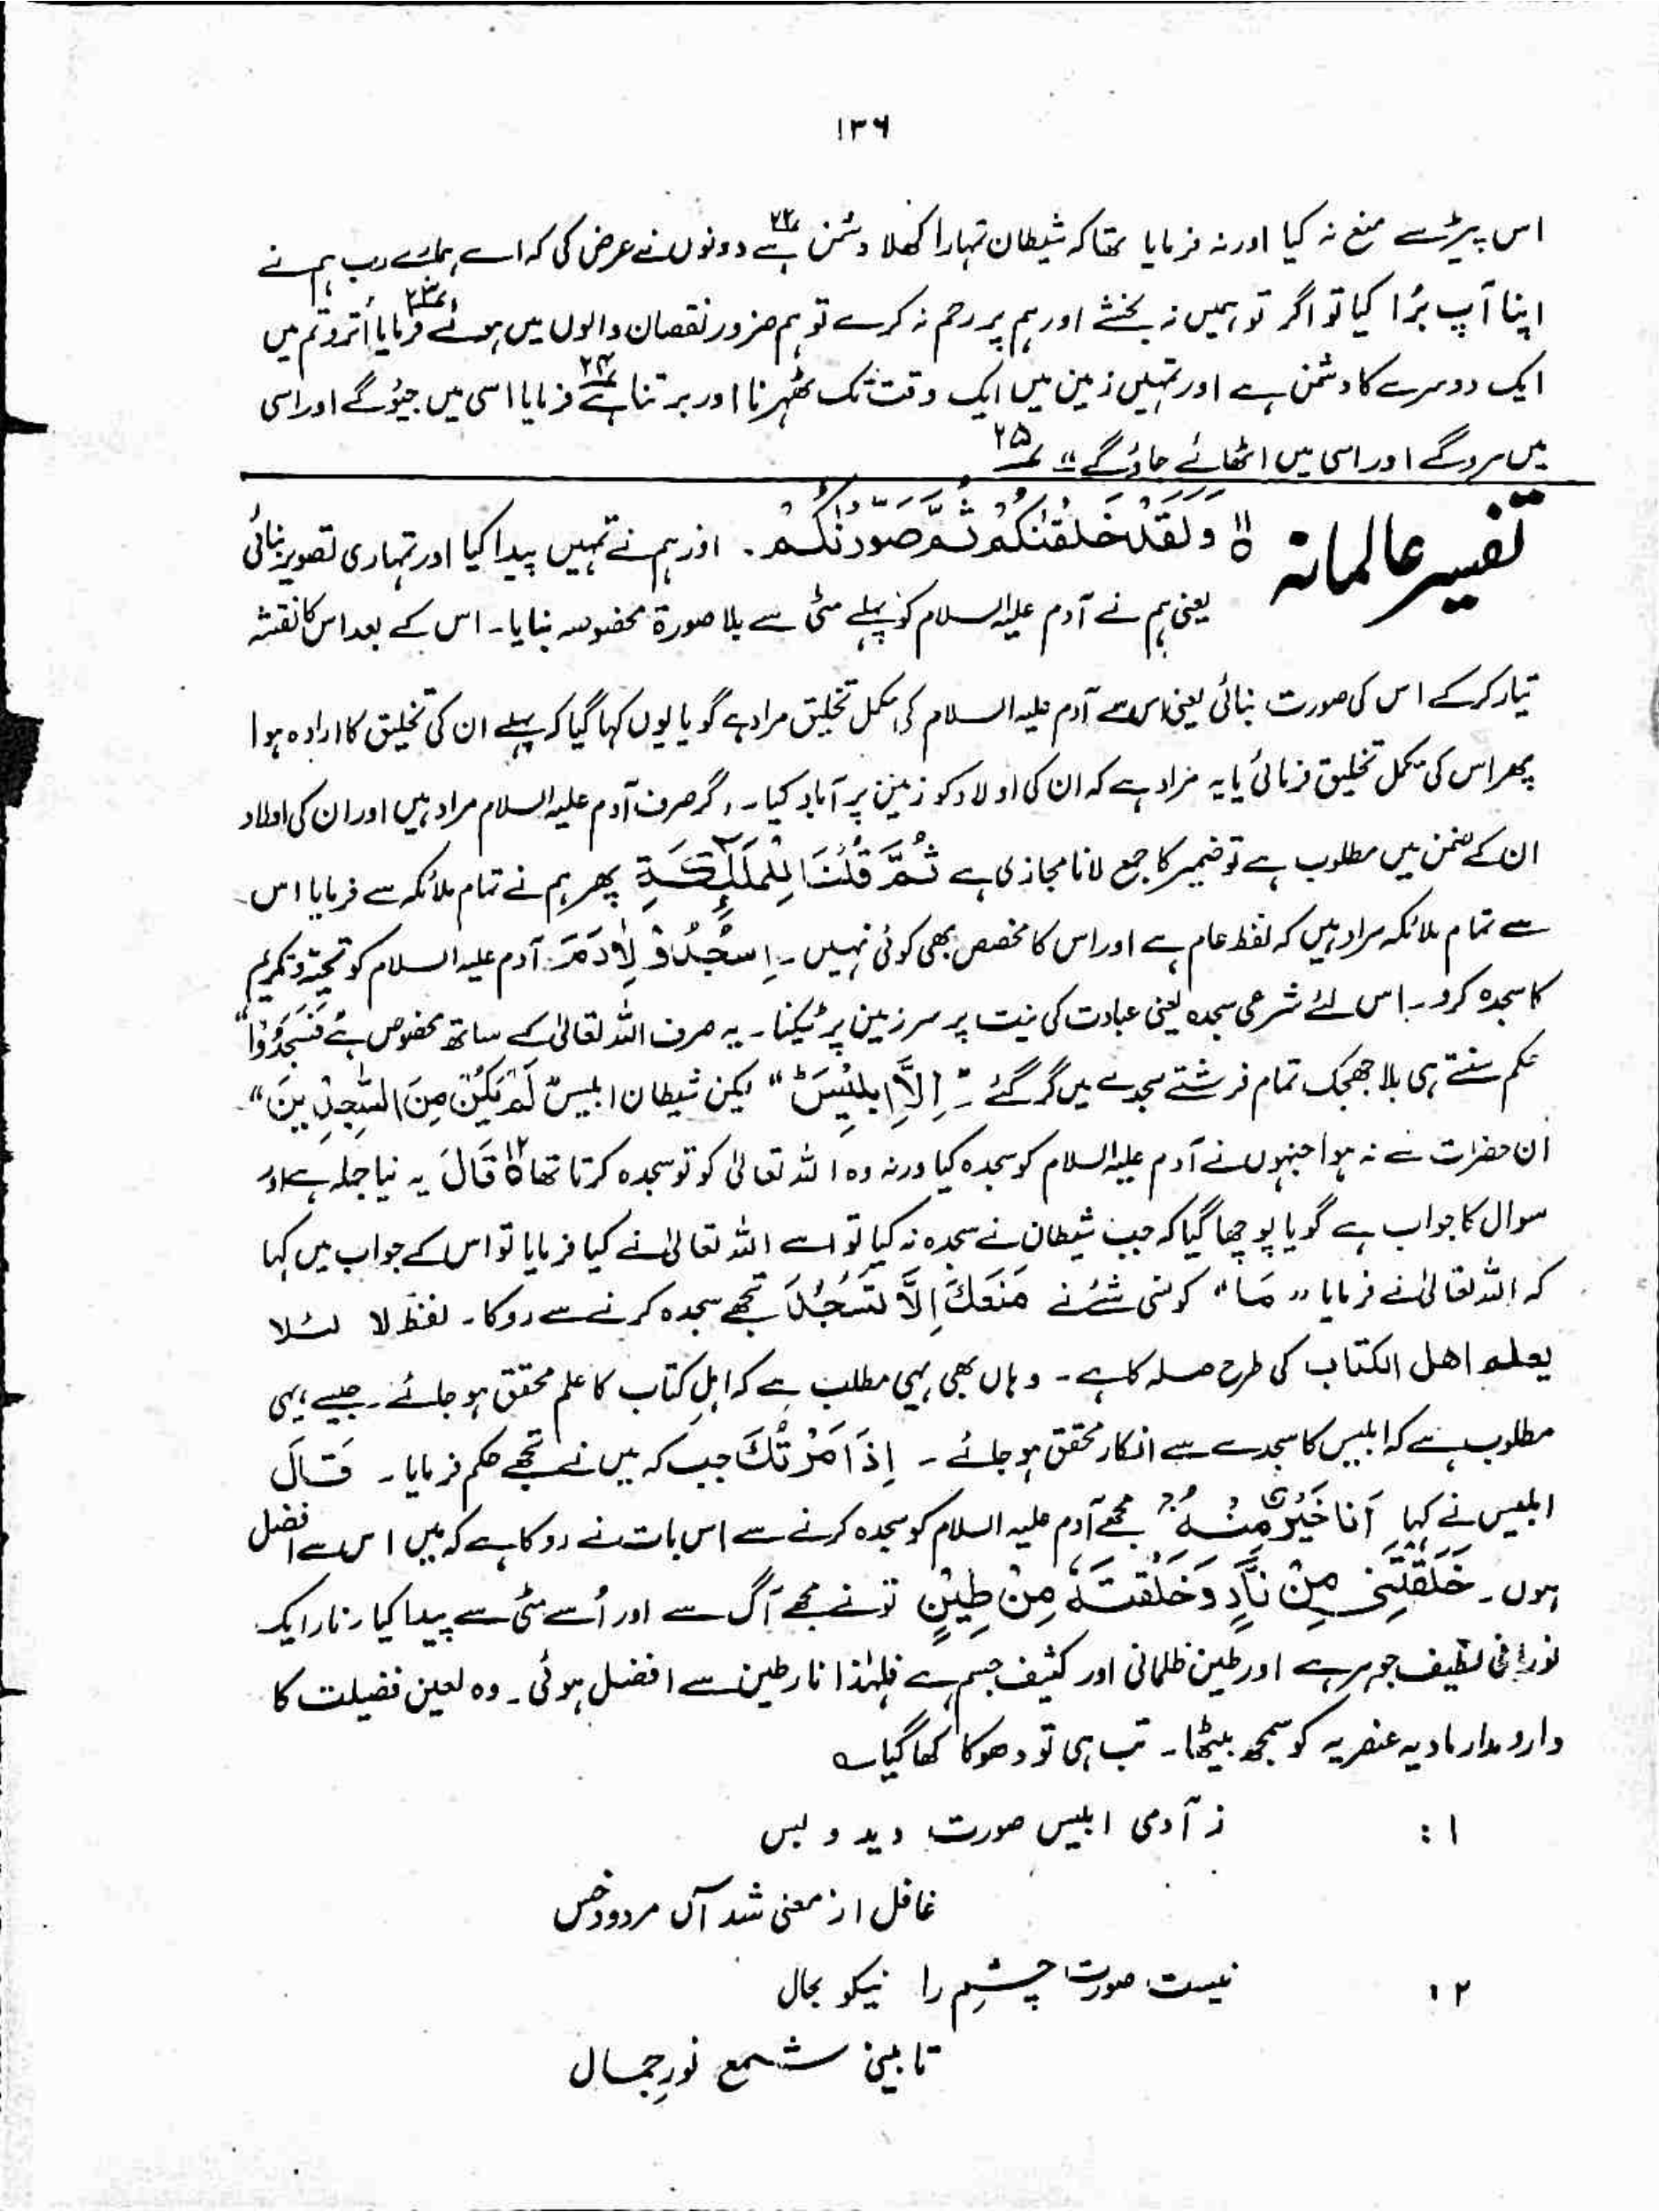 ۱۳۶
اس پیڑ سے منع نہ کیا اور نہ فرمایا تھا کہ شیطان تمہارا کھلا دشمن ہے ۲۲ دونوں نے عرض کی کہ اے ہمارے رب ہم نے
اپنا آپ بُرا کیا تو اگر تو ہمیں نہ بخشے اور ہم پر رحم نہ کرے تو ہم ضرور نقصان والوں میں ہوئے ۲۳ فرمایا اُترو تم میں
ایک دوسرے کا دشمن ہے اور تمہیں زمین میں ایک وقت تک ٹھہرنا اور برتنا ہے ۲۴ فرمایا اسی میں جیؤ گے اور اسی
میں مروگے اور اسی میں اٹھائے جاؤگے" ۲۵
تفسیر عالمانہ "وَلَقَدْ خَلَقْنٰكُمْ ثُمَّ صَوَّرْنٰكُمْ۔ اور ہم نے تمہیں پیدا کیا اور تمہاری تصویر بنائی
یعنی ہم نے آدم علیہ السلام کو پہلے مٹی سے بلا صورۃ مخصوصہ بنایا۔ اس کے بعد اس کا نقشہ
تیار کر کے اس کی صورت بنائی یعنی اس سے آدم علیہ السلام کی مکمل تخلیق مراد ہے گویا یوں کہا گیا کہ پہلے ان کی تخلیق کا ارادہ ہوا
پھر اس کی مکمل تخلیق فرمائی یا یہ مراد ہے کہ ان کی اولاد کو زمین پر آباد کیا۔ اگر صرف آدم علیہ السلام مراد ہیں اور ان کی اولاد
ان کے ضمن میں مطلوب ہے تو ضمیر کا جمع لانا مجازی ہے ثُمَّ قُلْنَا لِلْمَلٰٓئِكَةِ پھر ہم نے تمام ملائکہ سے فرمایا اس
سے تمام ملائکہ مراد ہیں کہ لفظ عام ہے اور اس کا مخصص بھی کوئی نہیں۔ اسْجُدُوْا لِاٰدَمَ۔ آدم علیہ السلام کو تحیۃ و تکریم
کا سجدہ کرو۔ اس لئے شرعی سجدہ یعنی عبادت کی نیت پر سر زمین پر ٹیکنا۔ یہ صرف اللہ تعالیٰ کے ساتھ مخصوص ہے فَسَجَدُوْا"
حکم سنتے ہی بلا جھجک تمام فرشتے سجدے میں گر گئے۔ "اِلَّا اِبْلِیْسَ" لیکن شیطان ابلیس لَمْ یَكُنْ مِنَ السّٰجِدِیْنَ"۔
ان حضرات سے نہ ہوا جنہوں نے آدم علیہ السلام کو سجدہ کیا ورنہ وہ اللہ تعالیٰ کو تو سجدہ کرتا تھا قَالَ یہ نیا جملہ ہے اور
سوال کا جواب ہے گویا پوچھا گیا کہ جب شیطان نے سجدہ نہ کیا تو اسے اللہ تعالیٰ نے کیا فرمایا تو اس کے جواب میں کہا
کہ اللہ تعالیٰ نے فرمایا "مَا" کونسی شئے نے مَنَعَكَ اِلَّا تَسْجُدَ تجھے سجدہ کرنے سے روکا۔ لفظ لا لئلا
یعلم اھل الکتاب کی طرح صلہ کا ہے۔ وہاں بھی یہی مطلب ہے کہ اہل کتاب کا علم محقق ہو جائے۔ جیسے یہی
مطلوب ہے کہ ابلیس کا سجدے سے انکار محقق ہو جائے۔ اِذْ اَمَرْتُكَ جب کہ میں نے تجھے حکم فرمایا۔ قَالَ
ابلیس نے کہا اَنَا خَیْرٌ مِنْہُ" مجھے آدم علیہ السلام کو سجدہ کرنے سے اس بات نے روکا ہے کہ میں اس سے افضل
ہوں۔ خَلَقْتَنِیْ مِنْ نَّارٍ وَّخَلَقْتَہٗ مِنْ طِیْنٍ تو نے مجھے آگ سے اور اُسے مٹی سے پیدا کیا۔ نار ایک
نورانی لطیف جوہر ہے اور طین ظلمانی اور کثیف جسم ہے فلہٰذا نار طین سے افضل ہوئی۔ وہ لعین فضیلت کا
دارومدار مادیہ عنصریہ کو سمجھ بیٹھا۔ تب ہی تو دھوکا کھا گیا ؎
۱: ز آدمی ابلیس صورت دید و بس
غافل از معنی شد آں مردود خس
۲: نیست صورت چشم را نیکو بحال
تا ببینی شمع نور جمال